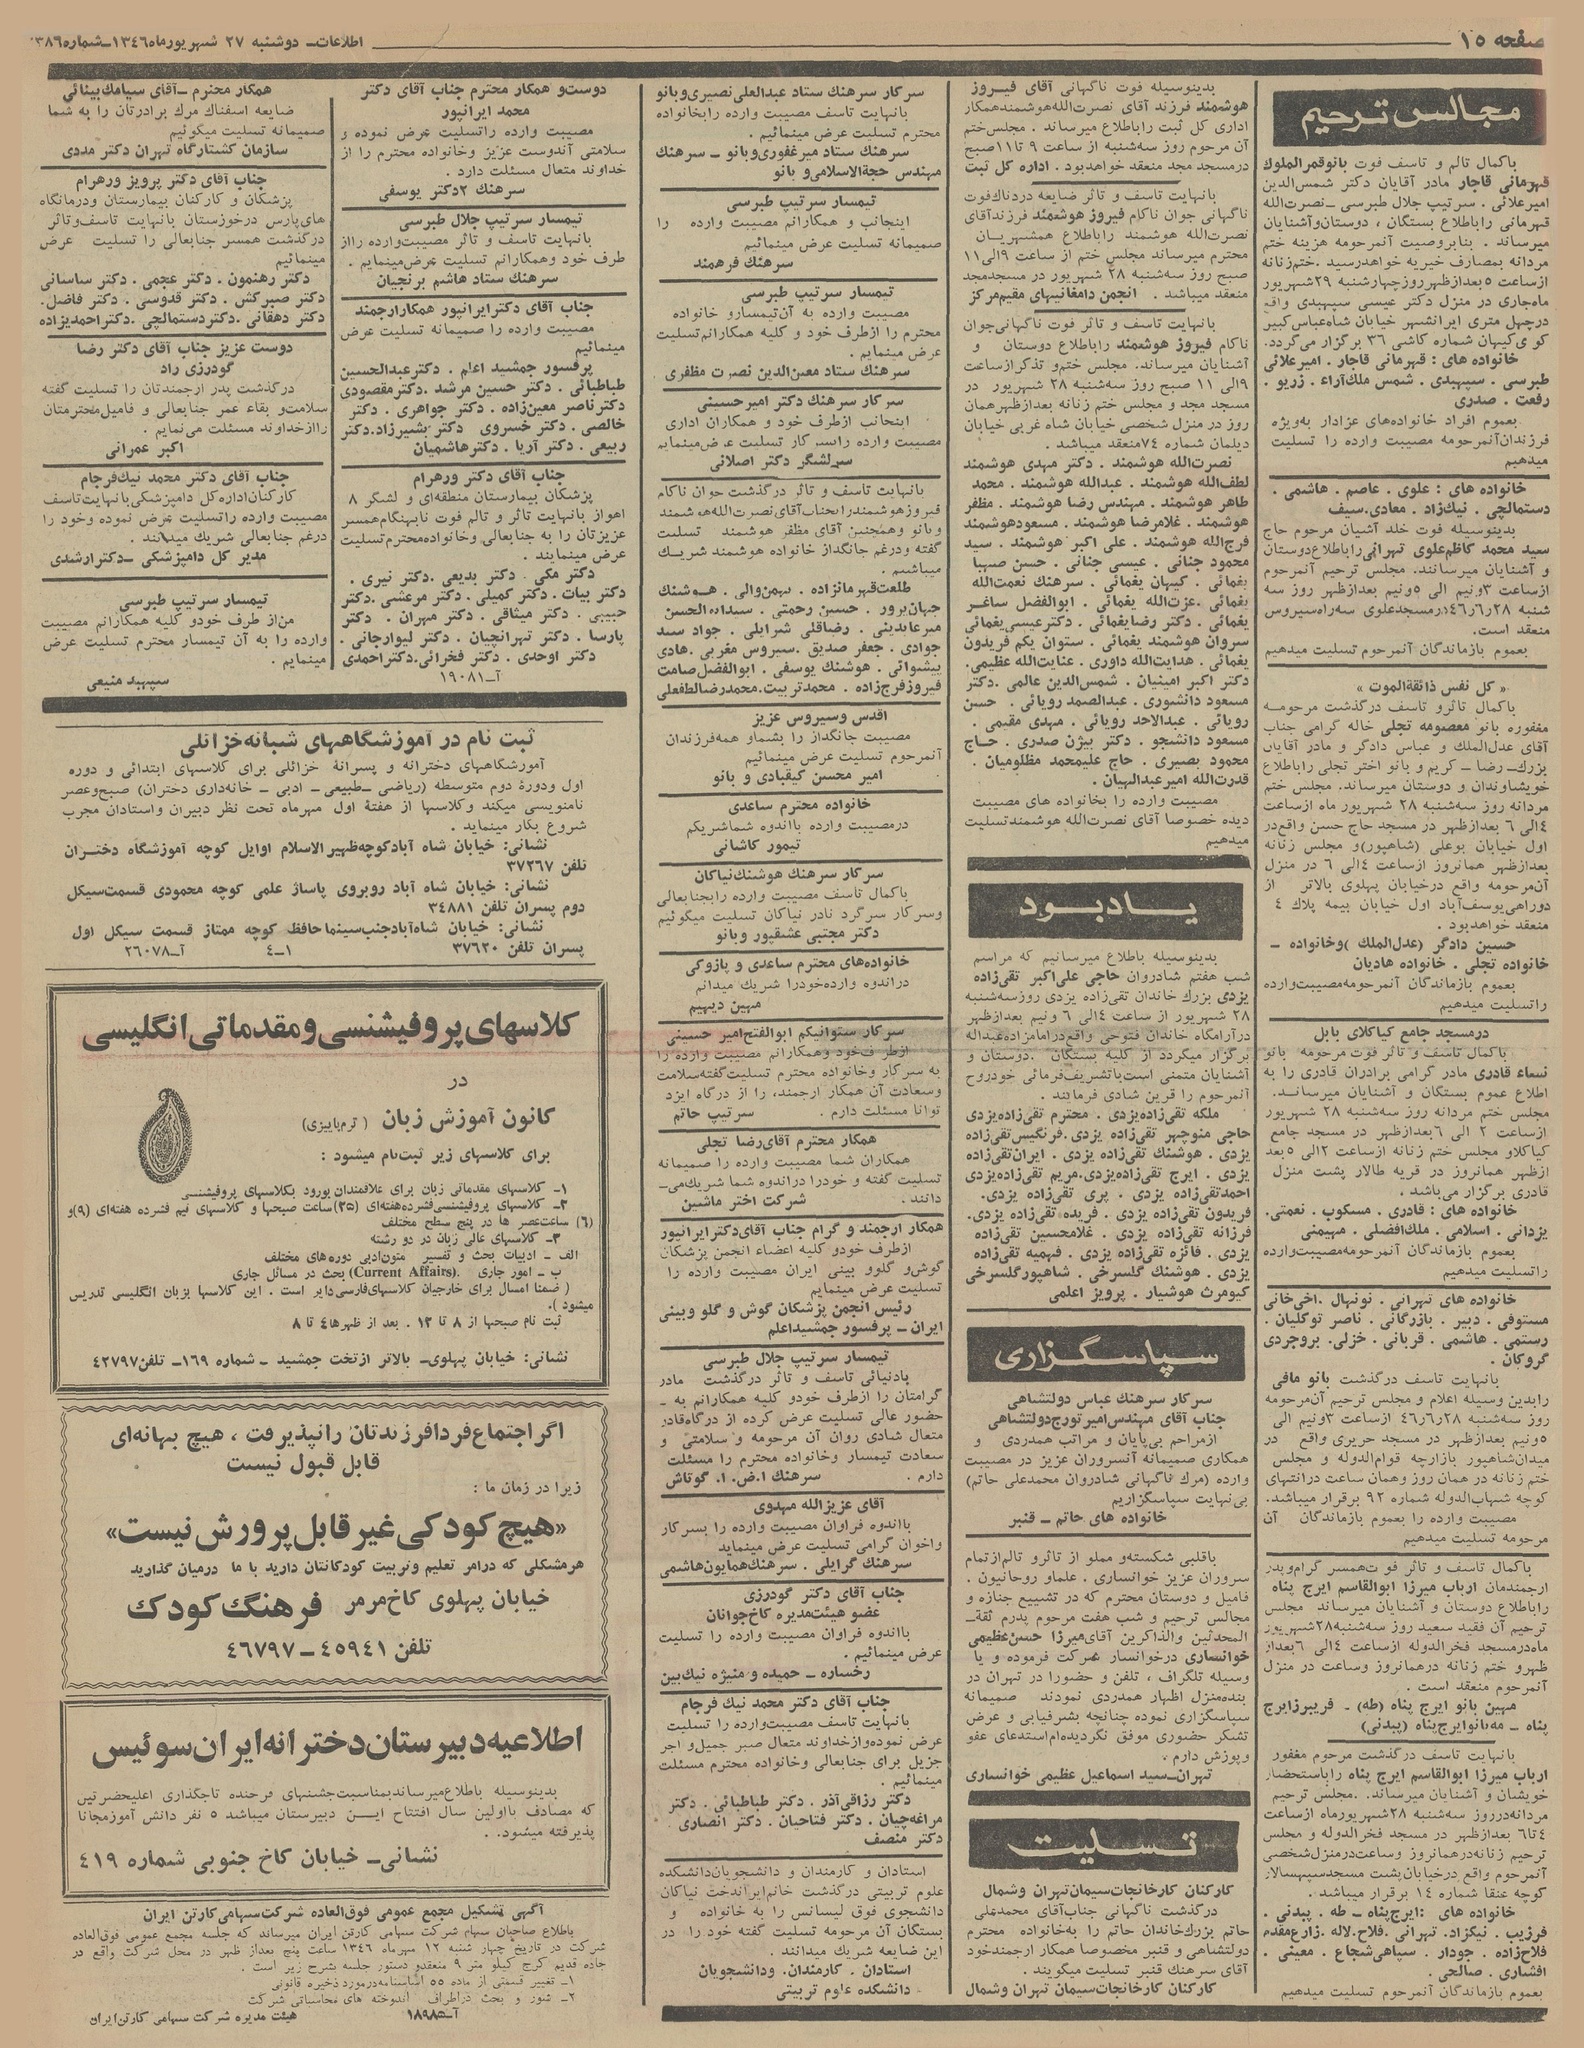 صفحه ۱۵
اطلاعات- دوشنبه ۲۷ شهریورماه ۱۳۴۶-شماره
مجالس ترحیم
باکمال تالم و تاسف فوت بانوقمرالملوك
قهرمانی قاجار مادر آقایان دکتر شمس‌الدین
امیرعلائی . سرتیپ جلال طبرسی -نصرت‌الله
قهرمانی راباطلاع بستگان ، دوستان‌وآشنایان
میرساند . بنابروصیت آنمرحومه هزینه ختم
مردانه بمصارف خیریه خواهدرسید .ختم‌زنانه
ازساعت ۵بعدازظهرروزچهارشنبه ۲۹شهریور
ماه‌جاری در منزل دکتر عیسی سپهبدی واقع
درچهل متری ایرانشهر خیابان شاه‌عباس‌کبیر
کوی‌کیهان شماره کاشی ۳۶ برگزار می‌گردد.
خانواده های : قهرمانی قاجار . امیرعلائی
طبرسی . سپهبدی . شمس ملك‌آراء . زریو .
رفعت . صدری
بعموم افراد خانواده‌های عزادار به‌ویژه
فرزندان‌آنمرحومه مصیبت وارده را تسلیت
میدهیم
خانواده های : علوی . عاصم . هاشمی .
دستمالچی . نیك‌زاد . معادی.سیف
بدینوسیله فوت خلد آشیان مرحوم حاج
سید محمد کاظم‌علوی تهرانی‌راباطلاع‌دوستان
و آشنایان میرسانند. مجلس ترحیم آنمرحوم
ازساعت ۳ونیم الی ۵ونیم بعدازظهر روز سه
شنبه ۴۶ر۶ر۲۸درمسجدعلوی سه‌راه‌سیروس
منعقد است.
بعموم بازماندگان آنمرحوم تسلیت میدهیم
« کل نفس ذائقة‌الموت »
باکمال تاثرو تاسف درگذشت مرحومه
مغفوره بانو معصومه تجلی خاله گرامی جناب
آقای عدل‌الملك و عباس دادگر و مادر آقایان
بزرك- رضا - کریم و بانو اختر تجلی راباطلاع
خویشاوندان و دوستان میرساند. مجلس ختم
مردانه روز سه‌شنبه ۲۸ شهریور ماه ازساعت
۴الی ۶ بعدازظهر در مسجد حاج حسن واقع‌در
اول خیابان بوعلی (شاهپور)و مجلس زنانه
بعدازظهر همانروز ازساعت ۴الی ۶ در منزل
آن‌مرحومه واقع درخیابان پهلوی بالاتر از
دوراهی‌یوسف‌آباد اول خیابان بیمه پلاك ۴
منعقد خواهدبود .
حسین دادگر (عدل‌الملك )وخانواده -
خانواده تجلی . خانواده هادیان
بعموم بازماندگان آنمرحومه‌مصیبت‌وارده
راتسلیت میدهیم
درمسجد جامع کیاکلای بابل
باکمال تاسف و تاثر فوت مرحومه بانو
نساء قادری مادر گرامی برادران قادری را به
اطلاع عموم بستگان و آشنایان میرسانـد.
مجلس ختم مردانه روز سه‌شنبه ۲۸ شهریور
ازساعت ۲ الی ۶بعدازظهر در مسجد جامع
کیاکلاو مجلس ختم زنانه ازساعت ۲الی ۵بعد
ازظهر همانروز در قریه طالار پشت منزل
قادری برگزار می‌باشد .
خانواده های : قادری . مسکوب . نعمتی.
یزدانی . اسلامی . ملك‌افضلی . مهیمنی
بعموم بازماندگان آنمرحومه‌مصیبت‌وارده
راتسلیت میدهیم
خانواده های تهرانی . نونهال .اخی‌خانی
مستوفی . دبیر . بازرگانی . ناصر توکلیان .
رستمی . هاشمی . قربانی . خزلی. بروجردی
گروکان .
بانهایت تاسف درگذشت بانو مافی
رابدین وسیله اعلام و مجلس ترحیم آن‌مرحومه
روز سه‌شنبه ۴۶ر۶ر۲۸ ازساعت ۳ونیم الی
۵ونیم بعدازظهر در مسجد حریری واقع در
میدان‌شاهپور بازارچه قوام‌الدوله و مجلس
ختم زنانه در همان روز وهمان ساعت درانتهای
کوچه شهاب‌الدوله شماره ۹۲ برقرار میباشد.
مصیبت وارده را بعموم بازماندگان آن
مرحومه تسلیت میدهیم
باکمال تاسف و تاثر فوت‌همسر گرام‌وپدر
ارجمندمان ارباب میرزا ابوالقاسم ایرج پناه
راباطلاع دوستان و آشنایان میرساند مجلس
ترحیم آن فقید سعید روز سه‌شنبه۲۸شهریور
ماه‌درمسجد فخرالدوله ازساعت ۴الی ۶بعداز
ظهرو ختم زنانه درهمانروز وساعت در منزل
آنمرحوم منعقد است .
مهین بانو ایرج پناه (طه) - فریبرزایرج
پناه - مه‌بانوایرج‌پناه (پیدنی)
بانهایت تاسف درگذشت مرحوم مغفور
ارباب میرزا ابوالقاسم ایرج پناه راباستحضار
خویشان و آشنایان میرساند. .مجلس ترحیم
مردانه‌درروز سه‌شنبه ۲۸شهریورماه ازساعت
۴تا۶ بعدازظهر در مسجد فخرالدوله و مجلس
ترحیم زنانه‌درهمانروز وساعت‌درمنزل‌شخصی
آنمرحوم واقع درخیابان‌پشت مسجدسپهسالار
کوچه عنقا شماره ۱۴ برقرار میباشد .
خانواده های :ایرج‌پناه - طه . پیدنی .
فرزیب . نیکزاد. تهرانی .فلاح.لاله. زارع‌مقدم
فلاح‌زاده . جودار . سپاهی‌شجاع . معینی .
افشاری . صالحی .
بعموم بازماندگان آنمرحوم تسلیت میدهیم
بدینوسیله فوت ناگهانی آقای فیـروز
هوشمند فرزند آقای نصرت‌الله هوشمندهمکار
اداری کل ثبت راباطلاع میرساند . مجلس‌ختم
آن مرحوم روز سه‌شنبه از ساعت ۹ تا۱۱صبح
درمسجد مجد منعقد خواهدبود . اداره کل ثبت
بانهایت تاسف و تاثر ضایعه دردناك‌فوت
ناگهانی جوان ناکام فیروز هوشمند فرزندآقای
نصرت‌الله هوشمند راباطلاع همشهریـان
محترم میرساند مجلس ختم از ساعت ۹الی۱۱
صبح روز سه‌شنبه ۲۸ شهریور در مسجدمجد
منعقد میباشد . انجمن دامغانیهای مقیم‌مرکز
بانهایت تاسف و تاثر فوت ناگهانی‌جوان
ناکام فیروز هوشمند راباطلاع دوستان و
آشنایان میرساند. مجلس ختم‌و تذکرازساعت
۹الی ۱۱ صبح روز سه‌شنبه ۲۸ شهریور در
مسجد مجد و مجلس ختم زنانه بعدازظهرهمان
روز در منزل شخصی خیابان شاه غربی خیابان
دیلمان شماره ۷۴منعقد میباشد .
نصرت‌الله هوشمند . دکتر مهدی هوشمند
لطف‌الله هوشمند . عبدالله هوشمند . محمد
طاهر هوشمند. مهندس رضا هوشمند . مظفر
هوشمند. غلامرضا هوشمند . مسعودهوشمند
فرج‌الله هوشمند . علی اکبر هوشمند . سید
محمود جنانی . عیسی جنانی . حسن صهبا
یغمائی . کیهان یغمائی . سرهنك نعمت‌الله
یغمائی .عزت‌الله یغمائی . ابوالفضل ساغـر
یغمائی . دکتر رضایغمائی . دکترعیسی‌یغمائی
سروان هوشمند یغمائی . ستوان یکم فریدون
یغمائی . هدایت‌الله داوری . عنایت‌الله عظیمی.
دکتر اکبر امینیان . شمس‌الدین عالمی .دکتر
مسعود دانشوری . عبدالصمد رویائی . حسن
رویائی . عبدالاحد رویائی . مهدی مقیمی .
مسعود دانشجو . دکتر بیژن صدری . حـاج
محمود بصیری . حاج علیمحمد مظلومیان .
قدرت‌الله امیرعبدالهیان.
مصیبت وارده را بخانواده های مصیبت
دیده خصوصا آقای نصرت‌الله هوشمندتسلیت
میدهیم
یـادبـود
بدینوسیله باطلاع میرسانیم که مراسم
شب هفتم شادروان حاجی علی‌اکبر تقی‌زاده
یزدی بزرك خاندان تقی‌زاده یزدی روزسه‌شنبه
۲۸ شهریور از ساعت ۴الی ۶ ونیم بعدازظهر
درآرامگاه خاندان فتوحی واقع‌درامامزاده‌عبداله
برگزار میگردد از کلیه بستگان .دوستان و
آشنایان متمنی است‌باتشریف‌فرمائی خودروح
آنمرحوم را قرین شادی فرمایند .
ملکه تقی‌زاده‌یزدی . محترم تقی‌زاده‌یزدی
حاجی منوچهر تقی‌زاده یزدی.فرنگیس‌تقی‌زاده
یزدی . هوشنك تقی‌زاده یزدی. ایران‌تقی‌زاده
یزدی . ایرج تقی‌زاده‌یزدی.مریم تقی‌زاده‌یزدی
احمدتقی‌زاده یزدی . پری تقی‌زاده یزدی.
فریدون تقی‌زاده یزدی. فریده تقی‌زاده یزدی.
فرزانه تقی‌زاده یزدی. غلامحسین تقی‌زاده
یزدی . فائزه تقی‌زاده یزدی. فهمیه تقی‌زاده
یزدی . هوشنك گلسرخی . شاهپورگلسرخی
کیومرث هوشیار . پرویز اعلمی
سپاسگزاری
سرکار سرهنك عباس دولتشاهی
جناب آقای مهندس‌امیرتورج‌دولتشاهی
ازمراحم بی‌پایان و مراتب همدردی و
همکاری صمیمانه آنسروران عزیز در مصیبت
وارده (مرك ناگهانی شادروان محمدعلی حاتم)
بی‌نهایت سپاسگزاریم
خانواده های حاتم - قنبر
باقلبی شکسته‌و مملو از تاثرو تالم‌ازتمام
سروران عزیز خوانساری . علماو روحانیون .
فامیل و دوستان محترم که در تشییع جنازه و
مجالس ترحیم و شب هفت مرحوم پدرم ثقة-
المحدثین والذاکرین آقای‌میرزا حسن‌عظیمی
خوانساری درخوانسار شرکت فرموده و یا
وسیله تلگراف ، تلفن و حضورا در تهران در
بنده‌منزل اظهار همدردی نمودند صمیمانه
سپاسگزاری نموده چنانچه بشرفیابی و عرض
تشکر حضوری موفق نگردیده‌ام استدعای عفو
وپوزش دارم .
تهران-سید اسماعیل عظیمی خوانساری
تسلیت
کارکنان کارخانجات‌سیمان‌تهران وشمال
درگذشت ناگهانی جناب‌آقای محمدعلی
حاتم بزرك‌خاندان حاتم را به‌خانواده محترم
دولتشاهی و قنبر مخصوصا همکار ارجمندخود
آقای سرهنك قنبر تسلیت میگویند .
کارکنان کارخانجات‌سیمان تهران وشمال
سرکار سرهنك ستاد عبدالعلی نصیری‌وبانو
بانهایت تاسف مصیبت وارده رابخانواده
محترم تسلیت عرض مینمائیم .
سرهنك ستاد میرغفوری‌وبانو - سرهنك
مهندس حجة‌الاسلامی‌و بانو
تیمسار سرتیپ طبرسی
اینجانب و همکارانم مصیبت وارده را
صمیمانه تسلیت عرض مینمائیم
سرهنك فرهمند
تیمسار سرتیپ طبرسی
مصیبت وارده به آن‌تیمسارو خانواده
محترم را ازطرف خود و کلیه همکارانم‌تسلیت
عرض مینمایم .
سرهنك ستاد معین‌الدین نصرت مظفری
سرکار سرهنك دکتر امیرحسینی
اینجانب ازطرف خود و همکاران اداری
مصیبت وارده راسرکار تسلیت عرض‌مینمایم
سرلشگر دکتر اصلانی
بانهایت تاسف و تاثر درگذشت جوان ناکام
فیروزهوشمندرابجناب‌آقای نصرت‌الله‌هوشمند
وبانو وهمچنین آقای مظفر هوشمند تسلیت
گفته ودرغم جانگداز خانواده هوشمند شریـك
میباشیم .
طلعت‌قهرمانزاده . بهمن‌والی . هـوشنك
جهان‌پرور . حسین رحمتی . سیداده‌الحسن
میرعابدینی . رضاقلی شرایلی . جواد سید
جوادی . جعفر صدیق .سیروس مغربی .هادی
پیشوائی . هوشنك یوسفی . ابوالفضل‌صامت
فیروزفرج‌زاده . محمدتربیت.محمدرضالطفعلی
اقدس وسیروس عزیز
مصیبت جانگداز را بشماو همه‌فرزندان
آنمرحوم تسلیت عرض مینمائیم
امیر محسن کیقبادی و بانو
خانواده محترم ساعدی
درمصیبت وارده بااندوه شماشریکم
تیمور کاشانی
سرکار سرهنك هوشنك‌نیاکان
باکمال تاسف مصیبت وارده رابجنابعالی
وسرکار سرگرد نادر نیاکان تسلیت میگوئیم
دکتر مجتبی عشقپور وبانو
خانواده‌های محترم ساعدی و بازوکی
دراندوه وارده‌خودرا شریك میدانم
مهین دیهیم
سرکار ستوانیکم ابوالفتح‌امیر حسینی
ازطرف‌خود وهمکارانم مصیبت وارده را
به سرکار وخانواده محترم تسلیت‌گفته‌سلامت
وسعادت آن همکار ارجمند، را از درگاه ایزد
توانا مسئلت دارم . سرتیپ حاتم
همکار محترم آقای‌رضا تجلی
همکاران شما مصیبت وارده را صمیمانه
تسلیت گفته و خودرا دراندوه شما شریك‌می-
دانند . شرکت اختر ماشین
همکار ارجمند و گرام جناب آقای‌دکترایرانپور
ازطرف خودو کلیه اعضاء انجمن پزشکان
گوش‌و گلوو بینی ایران مصیبت وارده را
تسلیت عرض مینمایم
رئیس انجمن پزشکان گوش و گلو وبینی
ایران - پرفسور جمشیداعلم
تیمسار سرتیپ جلال طبرسی
بادنیائی تاسف و تاثر درگذشت مادر
گرامتان را ازطرف خودو کلیه همکارانم به -
حضور عالی تسلیت عرض کرده از درگاه‌قادر
متعال شادی روان آن مرحومه و سلامتی و
سعادت تیمسار وخانواده محترم را مسئلت
دارم . سرهنك ا.ض. ا. گوتاش
آقای عزیزالله مهدوی
بااندوه فراوان مصیبت وارده را بسرکار
واخوان گرامی تسلیت عرض مینماید
سرهنك گرایلی . سرهنك‌همایون‌هاشمی
جناب آقای دکتر گودرزی
عضو هیئت‌مدیره کاخ‌جوانان
بااندوه فراوان مصیبت وارده را تسلیت
عرض مینمائیم .
رخساره - حمیده و منیژه نیك‌بین
جناب آقای دکتر محمد نیك فرجام
بانهایت تاسف مصیبت‌وارده را تسلیت
عرض نموده‌وازخداوند متعال صبر جمیل‌و اجر
جزیل برای جنابعالی وخانواده محترم مسئلت
مینمائیم .
دکتر رزاقی‌آذر . دکتر طباطبائی . دکتر
مراغه‌چیان . دکتر فتاحیان . دکتر انصاری .
دکتر منصف
استادان و کارمندان و دانشجویان‌دانشکده
علوم تربیتی درگذشت خانم‌ایراندخت نیاکان
دانشجوی فوق لیسانس را به خانواده و
بستگان آن مرحومه تسلیت گفته خود را در
این ضایعه شریك میدانند .
استادان . کارمندان. ودانشجویان
دانشکده علوم تربیتی
دوست‌و همکار محترم جناب آقای دکتر
محمد ایرانپور
مصیبت وارده راتسلیت عرض نموده و
سلامتی آندوست عزیز وخانواده محترم را از
خداوند متعال مسئلت دارد .
سرهنك ۲دکتر یوسفی
تیمسار سرتیپ جلال طبرسی
بانهایت تاسف و تاثر مصیبت‌وارده رااز
طرف خود وهمکارانم تسلیت عرض‌مینمایم .
سرهنك ستاد هاشم برنجیان
جناب آقای دکترایرانپور همکارارجمند
مصیبت وارده را صمیمانه تسلیت عرض
مینمائیم
پرفسور جمشید اعلم . دکترعبدالحسین
طباطبائی . دکتر حسین مرشد .دکترمقصودی
دکترناصر معین‌زاده . دکتر جواهری . دکتر
خالصی . دکتر خسروی دکتر بشیرزاد.دکتر
ربیعی . دکتر آریا . دکترهاشمیان
جناب آقای دکتر ورهرام
پزشکان بیمارستان منطقه‌ای و لشگر ۸
اهواز بانهایت تاثر و تالم فوت نابهنگام‌همسر
عزیزتان را به جنابعالی وخانواده‌محترم‌تسلیت
عرض مینمایند .
دکتر مکی . دکتر بدیعی .دکتر نیری .
دکتر بیات . دکتر کمیلی . دکتر مرعشی .دکتر
حبیبی . دکتر میثاقی . دکتر مهران . دکتر
پارسا . دکتر تهرانچیان . دکتر لیوارجانی .
دکتر اوحدی . دکتر فخرائی.دکتراحمدی
آ-۱۹۰۸۱
همکار محترم -آقای سیامك‌بینائی
ضایعه اسفناك مرك برادرتان را به شما
صمیمانه تسلیت میگوئیم
سازمان کشتارگاه تهران دکتر مددی
جناب آقای دکتر پرویز ورهرام
پزشکان و کارکنان بیمارستان ودرمانگاه
های‌پارس درخوزستان بانهایت تاسف‌وتاثر
درگذشت همسر جنابعالی را تسلیت عرض
مینمائیم
دکتر رهنمون . دکتر عجمی . دکتر ساسانی
دکتر صبرکش . دکتر قدوسی . دکتر فاضل.
دکتر دهقانی .دکتردستمالچی .دکتراحمدیزاده
دوست عزیز جناب آقای دکتر رضا
گودرزی راد
درگذشت پدر ارجمندتان را تسلیت گفته
سلامت‌و بقاء عمر جنابعالی و فامیل‌محترمتان
راازخداوند مسئلت می‌نمایم .
اکبر عمرانی
جناب آقای دکتر محمد نیك‌فرجام
کارکنان‌اداره‌کل دامپزشکی‌بانهایت‌تاسف
مصیبت وارده راتسلیت عرض نموده وخود را
درغم جنابعالی شریك میدانند .
مدیر کل دامپزشکی -دکترارشدی
تیمسار سرتیپ طبرسی
من‌از طرف خودو کلیه همکارانم مصیبت
وارده را به آن تیمسار محترم تسلیت عرض
مینمایم .
سپهبد منیعی
ثبت نام در آموزشگاههای شبانه‌خزائلی
آموزشگاههای دخترانه و پسرانهٔ خزائلی برای کلاسهای ابتدائی و دوره
اول ودورهٔ دوم متوسطه (ریاضی -طبیعی - ادبی - خانه‌داری دختران) صبح‌وعصر
نامنویسی میکند وکلاسها از هفتهٔ اول مهرماه تحت نظر دبیران واستادان مجرب
شروع بکار مینماید .
نشانی: خیابان شاه آبادکوچه‌ظهیرالاسلام اوایل کوچه آموزشگاه دختـران
تلفن ۳۷۲۶۷
نشانی: خیابان شاه آباد روبروی پاساژ علمی کوچه محمودی قسمت‌سیکل
دوم پسران تلفن ۳۴۸۸۱
نشانی: خیابان شاه‌آبادجنب‌سینماحافظ کوچه ممتاز قسمت سیکل اول
پسران تلفن ۳۷۶۲۰ ۱-۴ آ-۲۶۰۷۸
کلاسهای پروفیشنسی‌ومقدماتی‌انگلیسی
در
کانون آموزش زبان (ترم‌پاییزی)
برای کلاسهای زیر ثبت‌نام میشود :
۱- کلاسهای مقدماتی زبان برای علاقمندان بورود بکلاسهای پروفیشنسی
۲- کلاسهای پروفیشنسی‌فشرده‌هفته‌ای (۲۵)ساعت صبحها و کلاسهای نیم فشرده هفته‌ای (۹)و
(۶) ساعت‌عصر ها در پنج سطح مختلف
۳- کلاسهای عالی زبان در دو رشته
الف - ادبیات بحث و تفسیر متون‌ادبی دوره‌های مختلف
ب - امور جاری .(Current Affairs) بحث در مسائل جاری
( ضمنا امسال برای خارجیان کلاسهای‌فارسی‌دایر است . این کلاسها بزبان انگلیسی تدریس
میشود ).
ثبت نام صبحها از ۸ تا ۱۲ . بعد از ظهرها۴ تا ۸
نشانی: خیابان پهلوی- بالاتر ازتخت جمشید - شماره ۱۶۹- تلفن۴۲۷۹۷
اگراجتماع‌فردافرزندتان رانپذیرفت ، هیچ بهانه‌ای
قابل قبول نیست
زیرا در زمان ما :
«هیچ‌کودکی‌غیرقابل‌پرورش‌نیست»
هرمشکلی که درامر تعلیم وتربیت کودکانتان دارید با ما درمیان گذارید
خیابان پهلوی کاخ‌مرمر فرهنگ‌کودك
تلفن ۴۵۹۴۱-۴۶۷۹۷
اطلاعیه‌دبیرستان‌دخترانه‌ایران‌سوئیس
بدینوسیله باطلاع‌میرساندبمناسبت‌جشنهای فرخنده تاجگذاری اعلیحضرتین
که مصادف بااولین سال افتتاح ایـن دبیرستان میباشد ۵ نفر دانش آموزمجانا
پذیرفته میشود. .
نشانی- خیابان کاخ جنوبی شماره ۴۱۹
آگهی تشکیل مجمع عمومی فوق‌العاده شرکت‌سهامی‌کارتن ایران
باطلاع صاحبان سهام شرکت سهامی کارتن ایران میرساند که جلسه مجمع عمومی فوق‌العاده
شرکت در تاریخ چهار شنبه ۱۲ مهرماه ۱۳۴۶ ساعت پنج بعداز ظهر در محل شرکت واقع در
جاده قدیم کرج کیلو متر ۹ منعقدو دستور جلسه بشرح زیر است .
۱- تغییر قسمتی از ماده ۵۵ اساسنامه‌درمورد ذخیره قانونی
۲- شور و بحث دراطراف اندوخته های محاسباتی شرکت
آ-۱۸۹۸۵ هیئت مدیره شرکت سهامی کارتن‌ایران